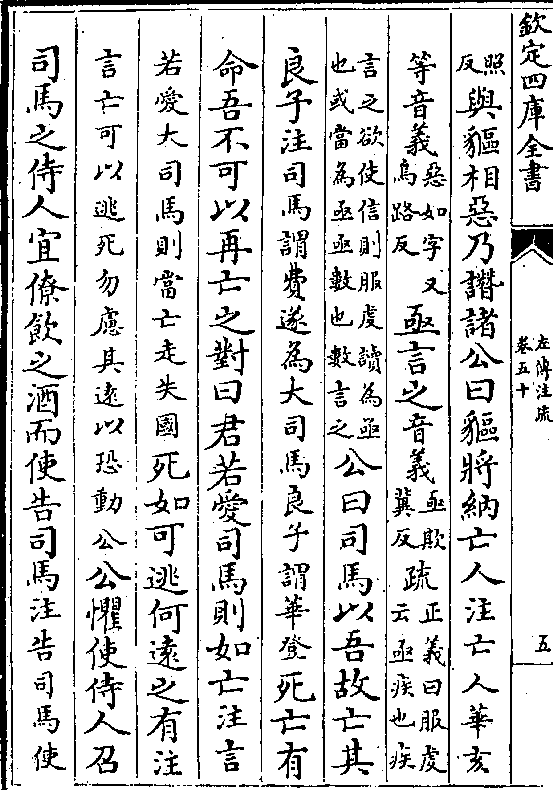 欽定四庫全書
左傳注疏
卷五十
五
照反與貙相惡乃譖諸公曰貙將納亡人注亡人華亥
等音義惡如字又烏路反亟言之音義亟欺冀反疏正義曰服虔云亟疾也疾
言之欲使信則服虔讀為亟也或當為亟亟數也數言之公曰司馬以吾故亡其
良子注司馬謂費遂為大司馬良子謂華登死亡有
命吾不可以再亡之對曰君若愛司馬則如亡注言
若愛大司馬則當亡走失國死如可逃何遠之有注
言亡可以逃死勿慮其遠以恐動公公懼使侍人召
司馬之侍人宜僚飲之酒而使告司馬注告司馬使